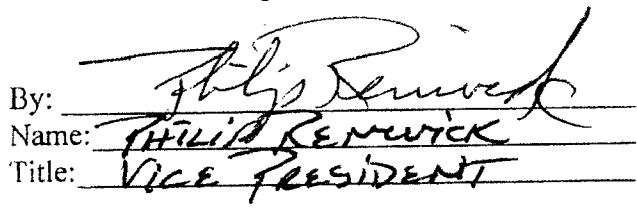 By: Philip Renwick
Name: PHILIP RENWICK
Title: VICE PRESIDENT